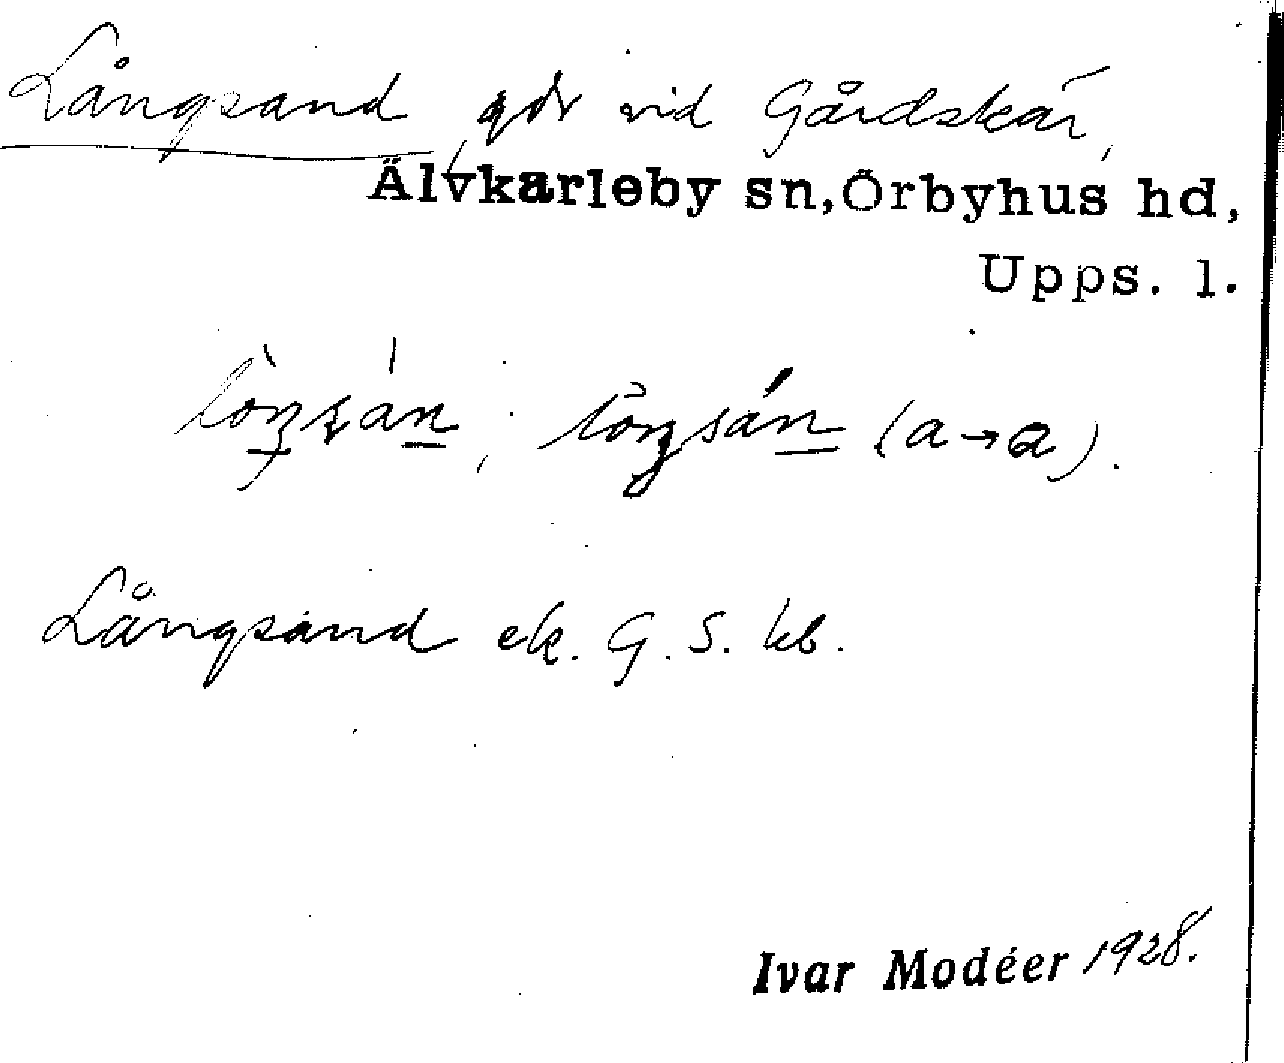 Långsand, gdr vid Gårdskär,
Älvkarleby sn, Örbyhus hd,
Upps. l.
(a → a).
Långsand ek. G. S. kb.
Ivar Modéer 1928.